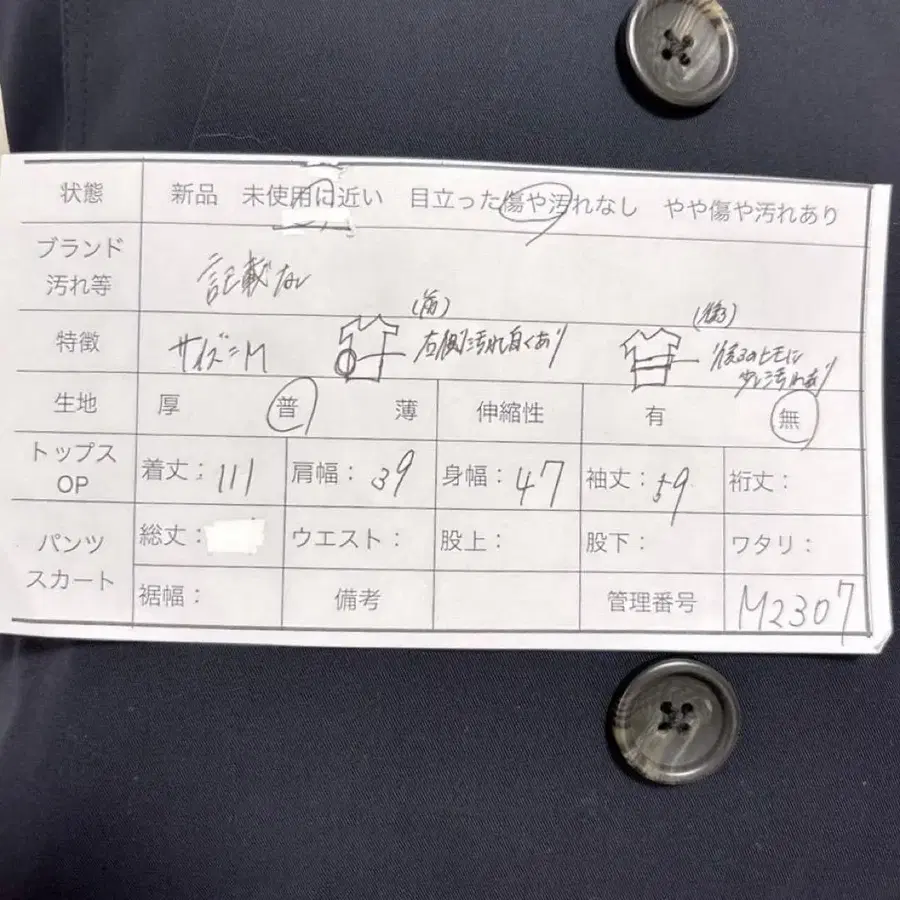 状態 新品 未使用に近い 目立った傷や汚れなし やや傷や汚れあり
ブランド
汚れ等 記載なし
特徴 サイズ=M (前) 右側汚れ白くあり (後ろ) 後ろのヒモに
少し汚れあり
生地 厚 普 薄 伸縮性 有 無
トップス
OP 着丈: 111 肩幅: 39 身幅: 47 袖丈: 59 裄丈:
パンツ
スカート 総丈: ウエスト: 股上: 股下: ワタリ:
裾幅: 備考 管理番号 M2307